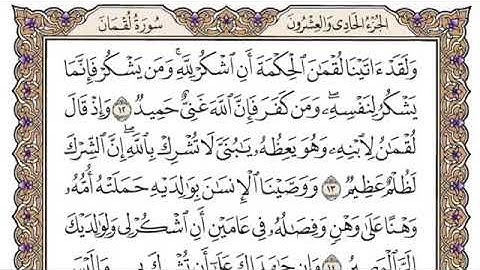 الجزء الحادي والعشرون
سورة لقمان
وَلَقَدْ ءَاتَيْنَا لُقْمَٰنَ ٱلْحِكْمَةَ أَنِ ٱشْكُرْ لِلَّهِ ۚ وَمَن يَشْكُرْ فَإِنَّمَا
يَشْكُرُ لِنَفْسِهِۦ ۖ وَمَن كَفَرَ فَإِنَّ ٱللَّهَ غَنِىٌّ حَمِيدٌ ١٢ وَإِذْ قَالَ
لُقْمَٰنُ لِٱبْنِهِۦ وَهُوَ يَعِظُهُۥ يَٰبُنَىَّ لَا تُشْرِكْ بِٱللَّهِ ۖ إِنَّ ٱلشِّرْكَ
لَظُلْمٌ عَظِيمٌ ١٣ وَوَصَّيْنَا ٱلْإِنسَٰنَ بِوَٰلِدَيْهِ حَمَلَتْهُ أُمُّهُۥ
وَهْنًا عَلَىٰ وَهْنٍ وَفِصَٰلُهُۥ فِى عَامَيْنِ أَنِ ٱشْكُرْ لِى وَلِوَٰلِدَيْكَ